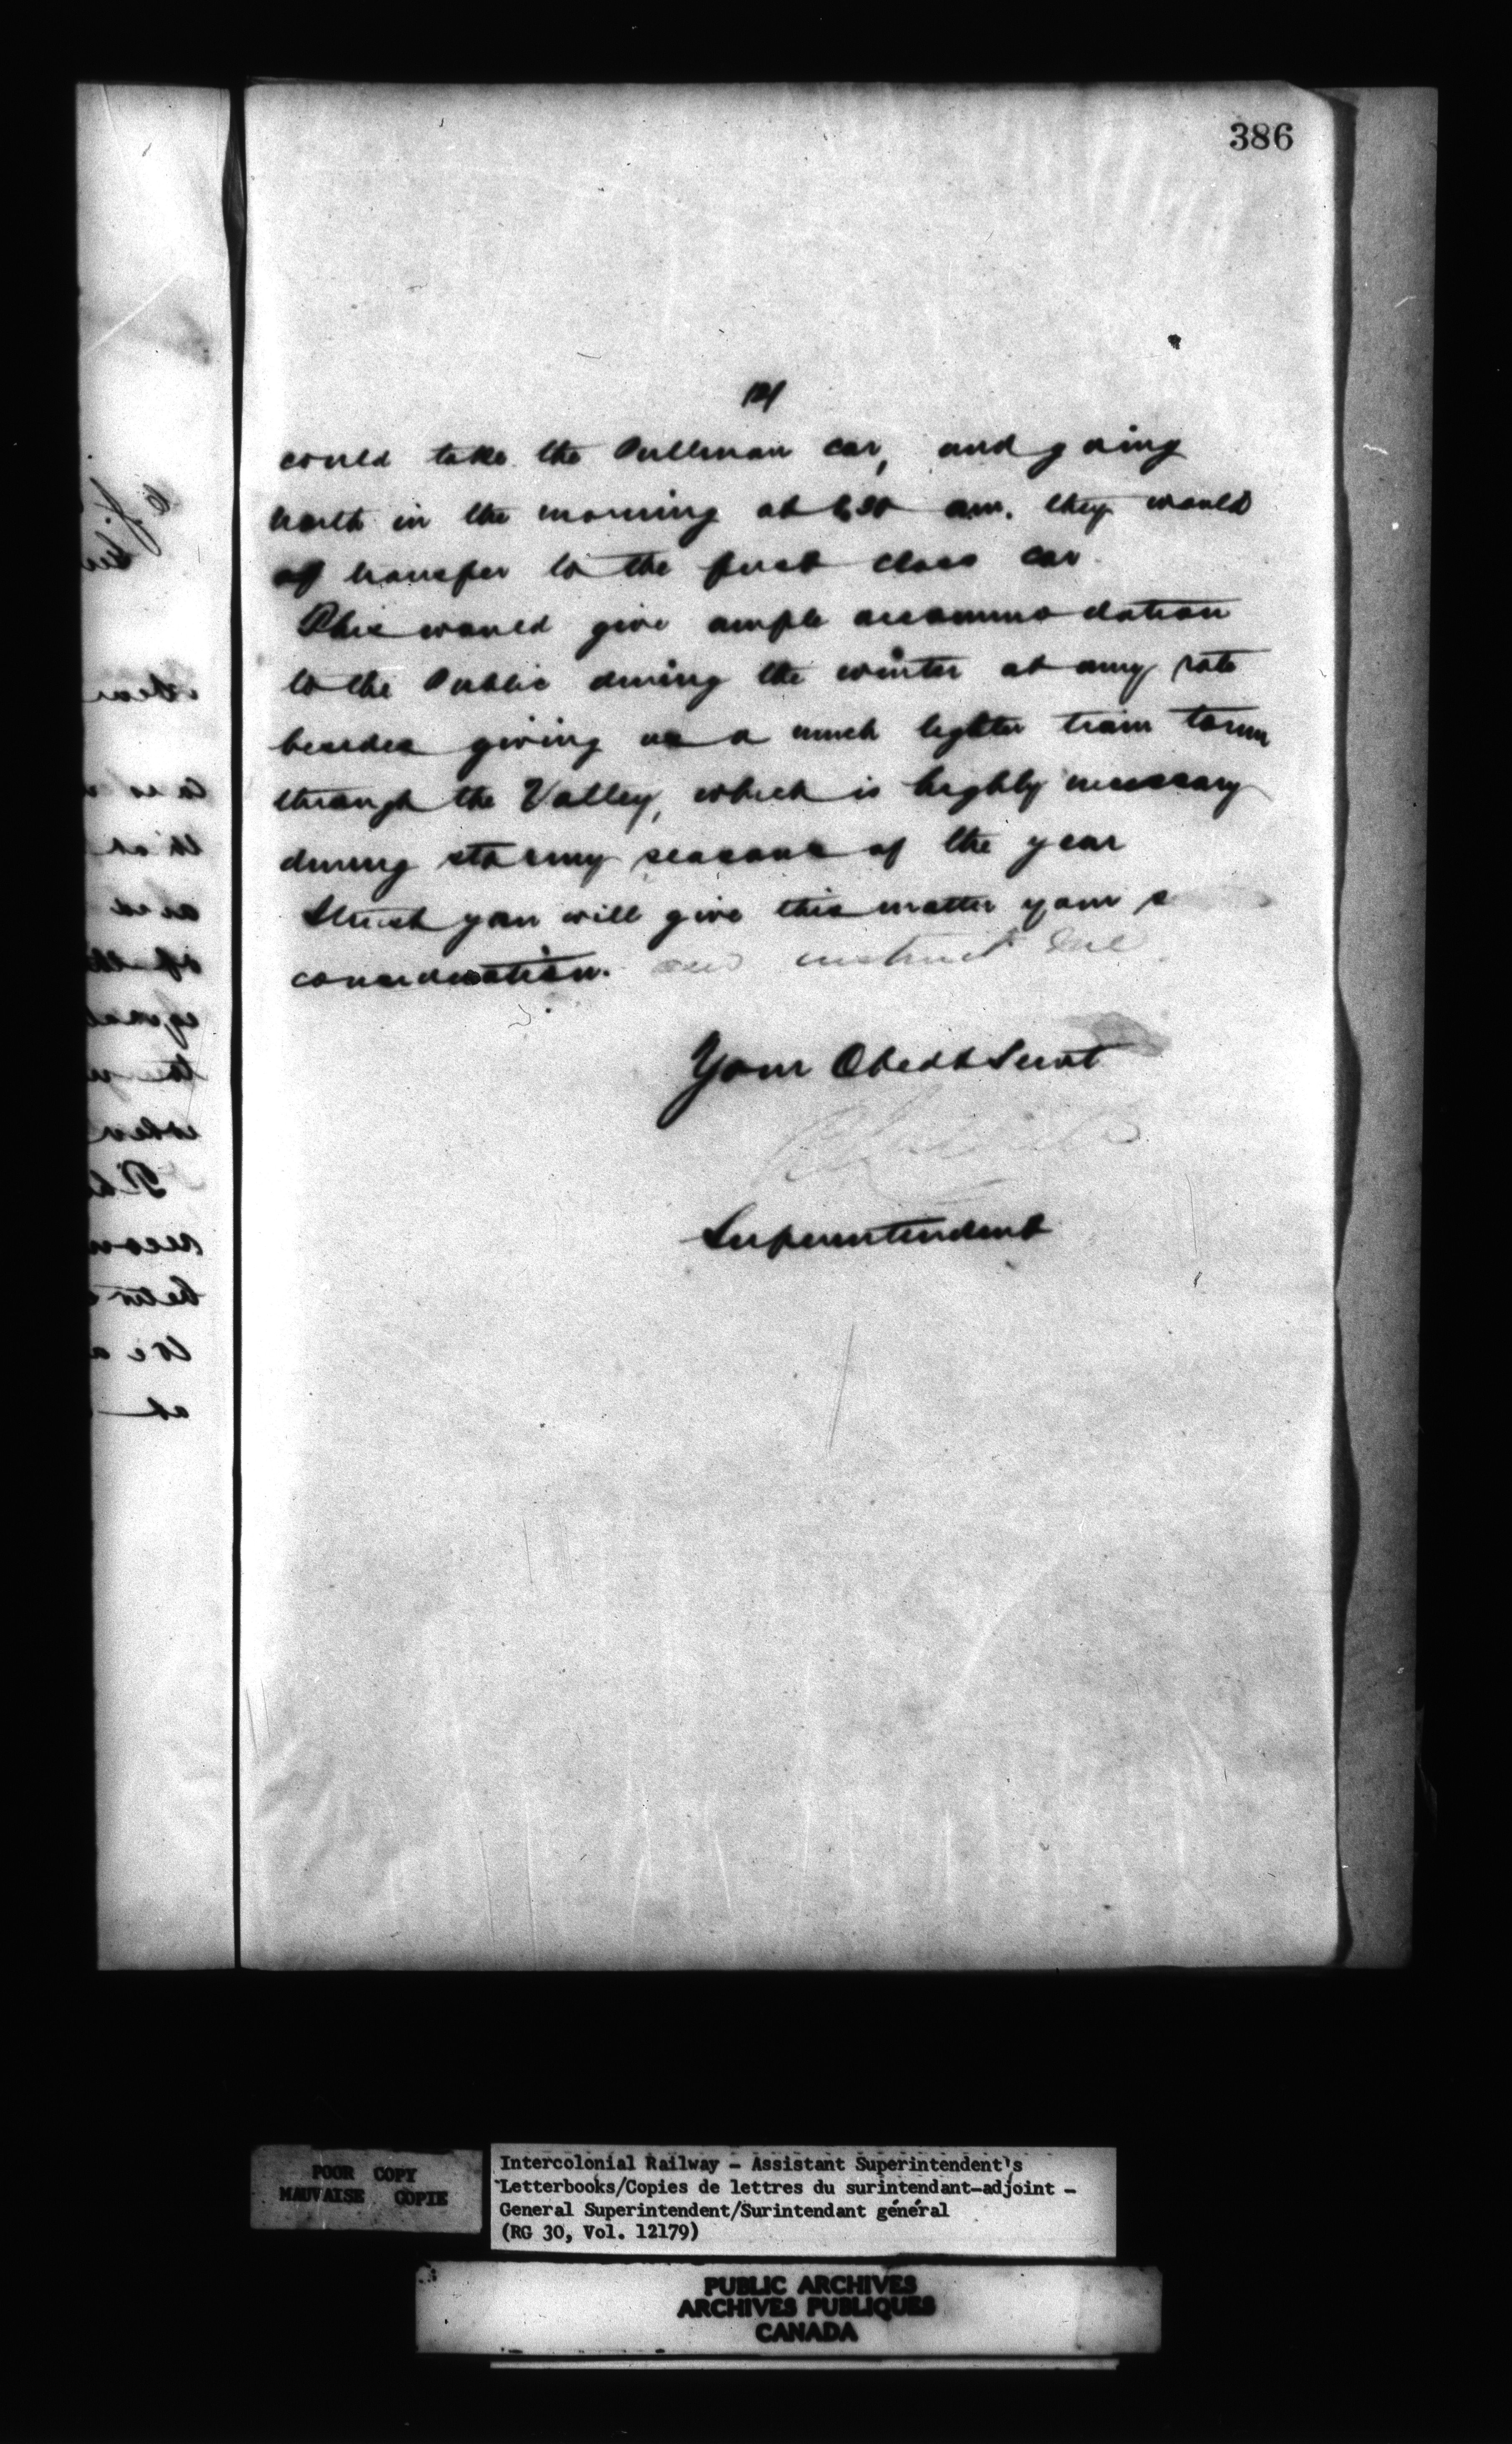 386
could take the Pullman car, and going
north in the morning at 6.30 am. they would
transfer to the first class car
This would give ample accommodation
to the Public during the winter at any rate
besides giving us a much lighter train to run
through the Valley, which is highly necessary
during stormy seasons of the year
I trust you will give this matter your
consideration. and instruct me
Your Obedt Servt
Superintendent
POOR COPY
MAUVAISE COPIE
Intercolonial Railway - Assistant Superintendent's
Letterbooks/Copies de lettres du surintendant-adjoint -
General Superintendent/Surintendant général
(RG 30, Vol. 12179)
PUBLIC ARCHIVES
ARCHIVES PUBLIQUES
CANADA